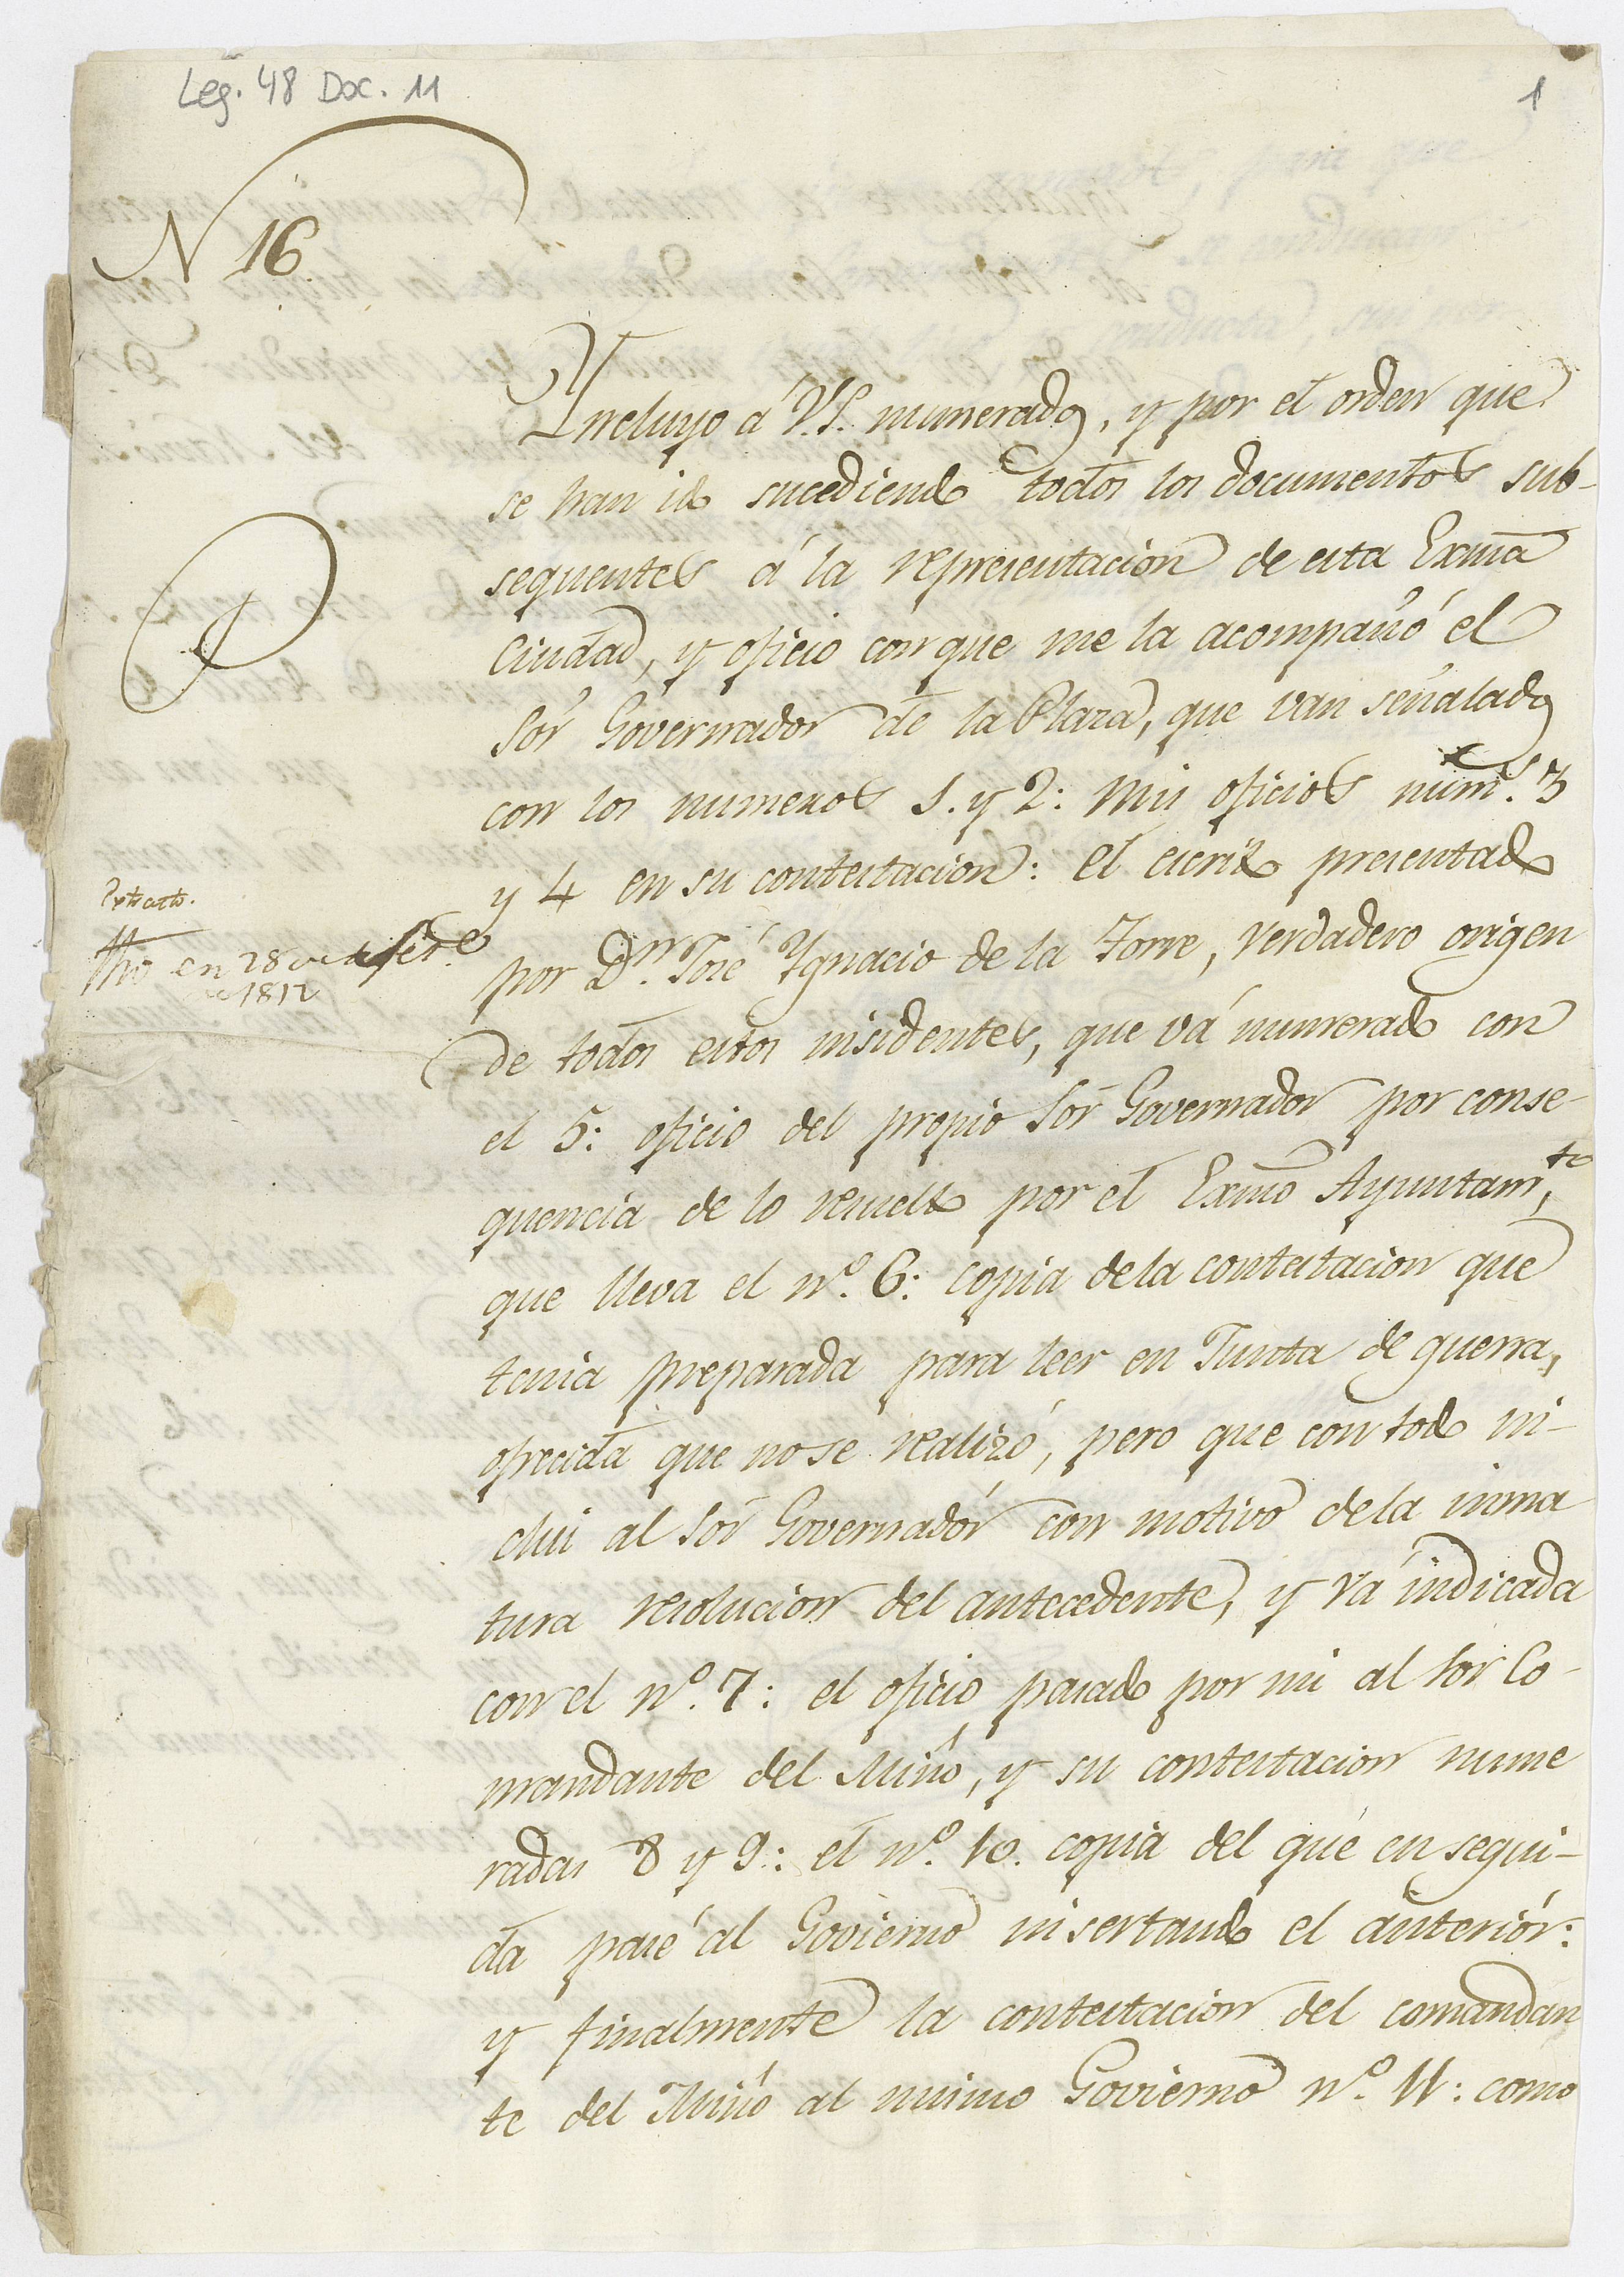 Leg. 48 Doc. 11
1
N 16
Yncluyo á V.S. numerados, y por el orden que
se han ido sucediendo todos los documentos sub-
sequentes á la representacion de esta Exma
Ciudad, y oficio con que me la acompañó el
Sor Governador de la Plaza, que van señalados
con los numeros 1. y 2: mis oficios núms. 3
y 4 en su contestacion: el escrito presentado
por Dn. José Ygnacio de la Torre, verdadero origen
de todos estos insidentes, que vá numerado con
el 5: oficio del propio Sor Governador por conse-
quencia de lo resuelto por el Exmo Ayuntamto,
que lleva el nº. 6: copia de la contestacion que
tenia preparada para leer en Junta de guerra,
ofrecida que no se realizó, pero que con todo in-
clui al Sor Governador con motivo de la inma
tura resolucion del antecedente, y vá indicada
con el nº. 7: el oficio pasado por mi al Sor Co-
mandante del Miño, y su contestacion nume
radas 8 y 9: el nº. 10. copia del que en segui-
da pasé al Govierno insertando el anteriór:
y finalmente la contestacion del comandan
te del Miño al mismo Govierno nº. 11: como
Extracto.
fho en 28 de
de 1812